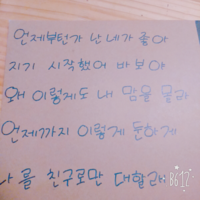 언제부턴가 난 네가 좋아
지기 시작했어 바보야
왜 이렇게도 내 맘을 몰라
언제까지 이렇게 둔하게
나를 친구로만 대할래
B612